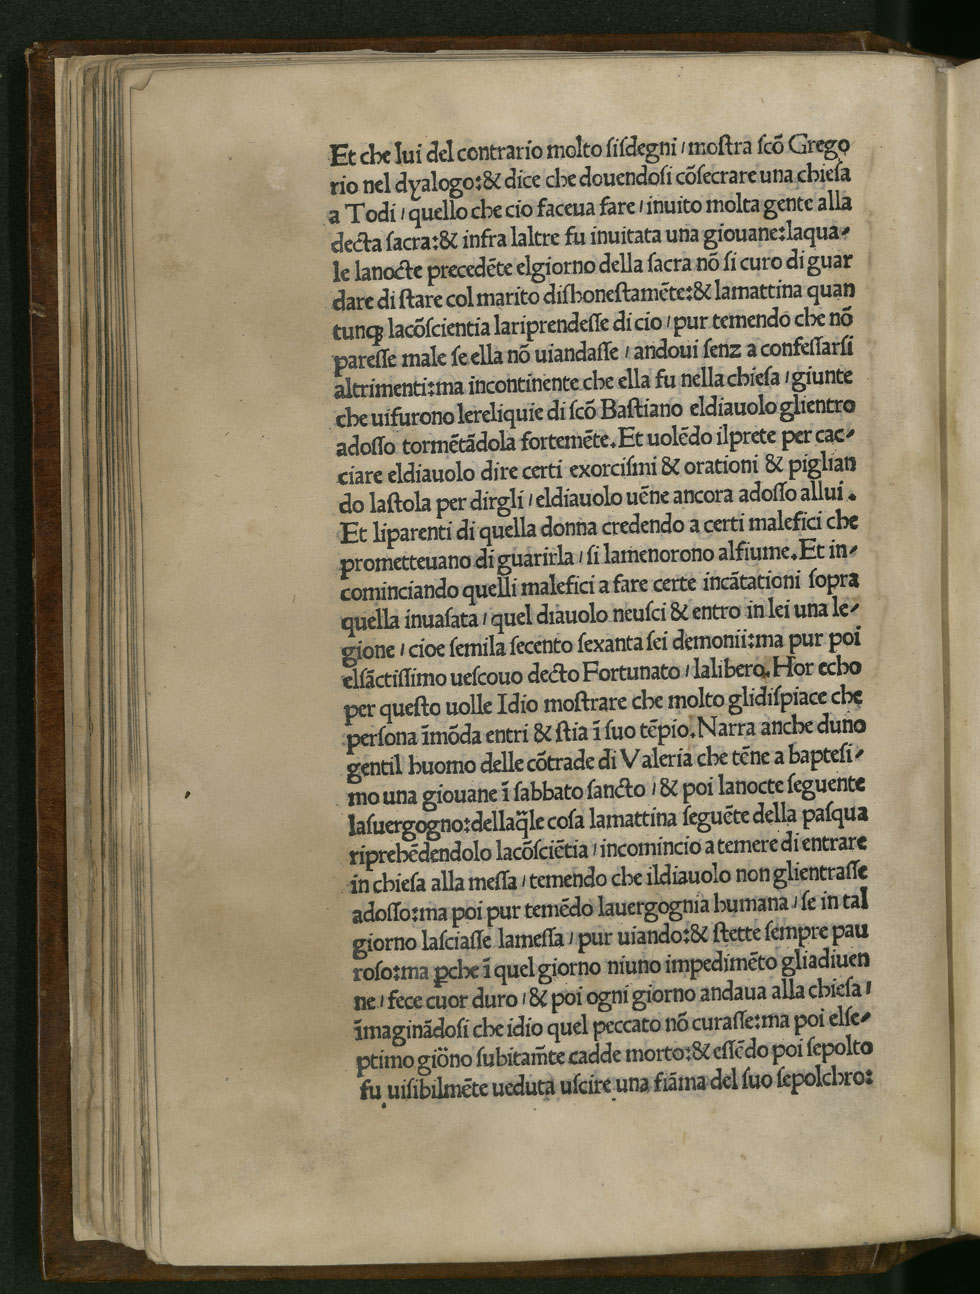 Et che lui del contrario molto ſiſdegni / moſtra ſcō Grego
rio nel dyalogo:& dice che douendoſi cōſecrare una chieſa
a Todi / quello che cio faceua fare / inuito molta gente alla
decta ſacra:& infra laltre fu inuitata una giouane:laqua-
le lanocte precedēte elgiorno della ſacra nō ſi curo di guar
dare di ſtare col marito diſhoneſtamēte:& lamattina quan
tunqꝫ lacōſcientia lariprendeſſe di cio / pur temendo che nō
pareſſe male ſe ella nō uiandaſſe / andoui ſenz a confeſſarſi
altrimenti:ma incontinente che ella fu nella chieſa / giunte
che uifurono lereliquie di ſcō Baſtiano eldiauolo glientro
adoſſo tormētādola fortemēte. Et uolēdo ilprete per cac-
ciare eldiauolo dire certi exorciſmi & orationi & piglian
do laſtola per dirgli / eldiauolo uēne ancora adoſſo allui.
Et liparenti di quella donna credendo a certi malefici che
prometteuano di guarirla / ſi lamenorono alfiume. Et in-
cominciando quelli malefici a fare certe incātationi ſopra
quella inuaſata / quel diauolo neuſci & entro in lei una le-
gione / cioe ſemila ſecento ſexanta ſei demonii:ma pur poi
elſāctiſſimo ueſcouo decto Fortunato / lalibero. Hor echo
per queſto uolle Idio moſtrare che molto glidiſpiace che
perſona īmōda entri & ſtia ī ſuo tēpio. Narra anche duno
gentil huomo delle cōtrade di Valeria che tēne a bapteſi-
mo una giouane ī ſabbato ſancto / & poi lanocte ſeguente
laſuergogno:dellaq̄le coſa lamattina ſeguēte della paſqua
riprehēdendolo lacōſciētia / incomincio a temere di entrare
in chieſa alla meſſa / temendo che ildiauolo non glientraſſe
adoſſo:ma poi pur temēdo lauergognia humana / ſe in tal
giorno laſciaſſe lameſſa / pur uiando:& ſtette ſempre pau
roſo:ma ꝑche ī quel giorno niuno impedimēto gliadiuen
ne / fece cuor duro / & poi ogni giorno andaua alla chieſa /
īmaginādoſi che idio quel peccato nō curaſſe:ma poi elſe-
ptimo giōno ſubitam̄te cadde morto:& eſſēdo poi ſepolto
fu uiſibilmēte ueduta uſcire una fiāma del ſuo ſepolchro: